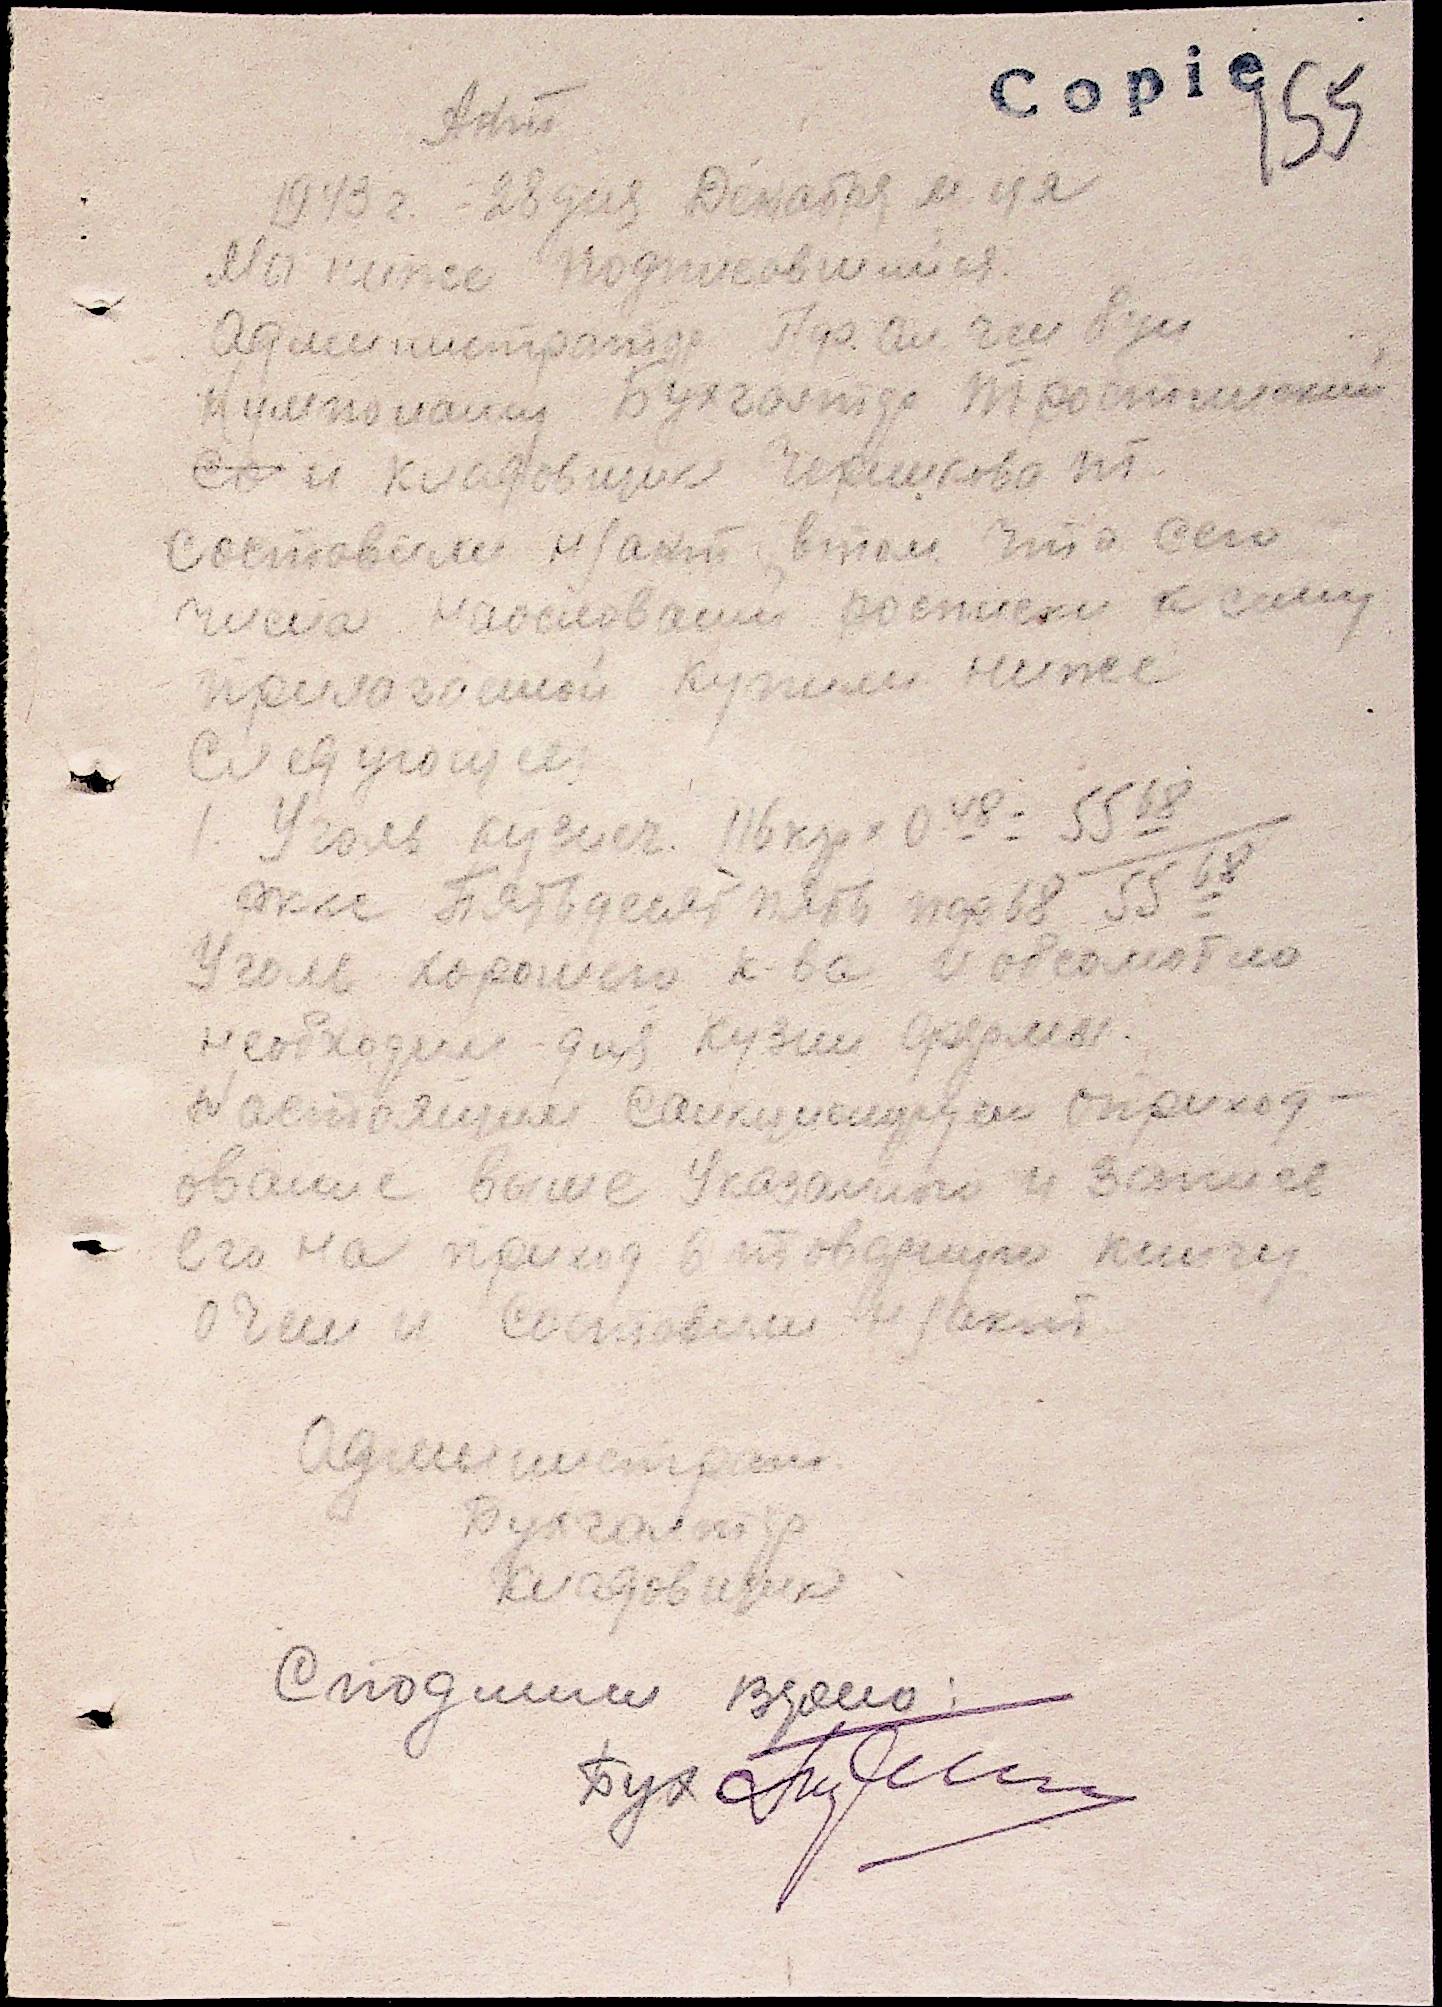 Copie
155
Акт
1943 г. - 28 дня Декабря м-ця
Мы ниже подписовшийся
Администратор
Бухгалтер
Со и кладовщик Чернкова
Составили н/акт в том что сего
числа на основании росписки к сему
прилагаемой купили ниже
Следующее:
1. Уголь кузнеч. 116 кгр × 0.48 = 55 68
55 68
Пятьдесят пять 68
Уголь хорошего к-ва и обсолютно
необходим для кузни фермы.
Настоящим санкционируем оприход-
ование выше Указанного и запись
его на приход в товарную книгу
о чем и составили н/акт.
Администрат.
Бухгалтер
Кладовщик
С подлинным верно:
Бух